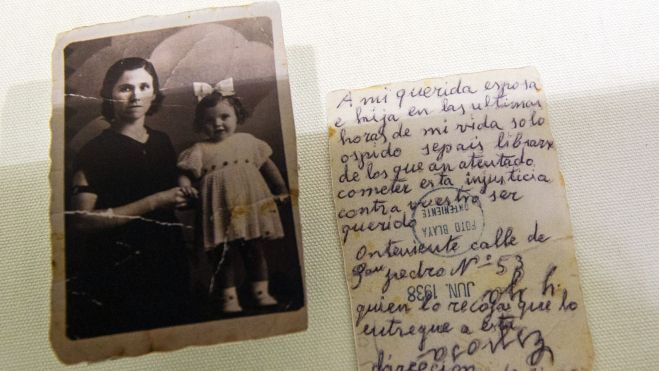 A mi querida esposa
e hija en las ultimas
horas de mi vida solo
os pido sepais librarx
de los que an atentado
cometer esta injusticia
contra vuestro ser
querido
FOTO BLAYA
ONTENIENTE
JUN. 1938
Onteniente calle de
San pedro Nº 53
quien lo recoja que lo
entregue a esta
direccion